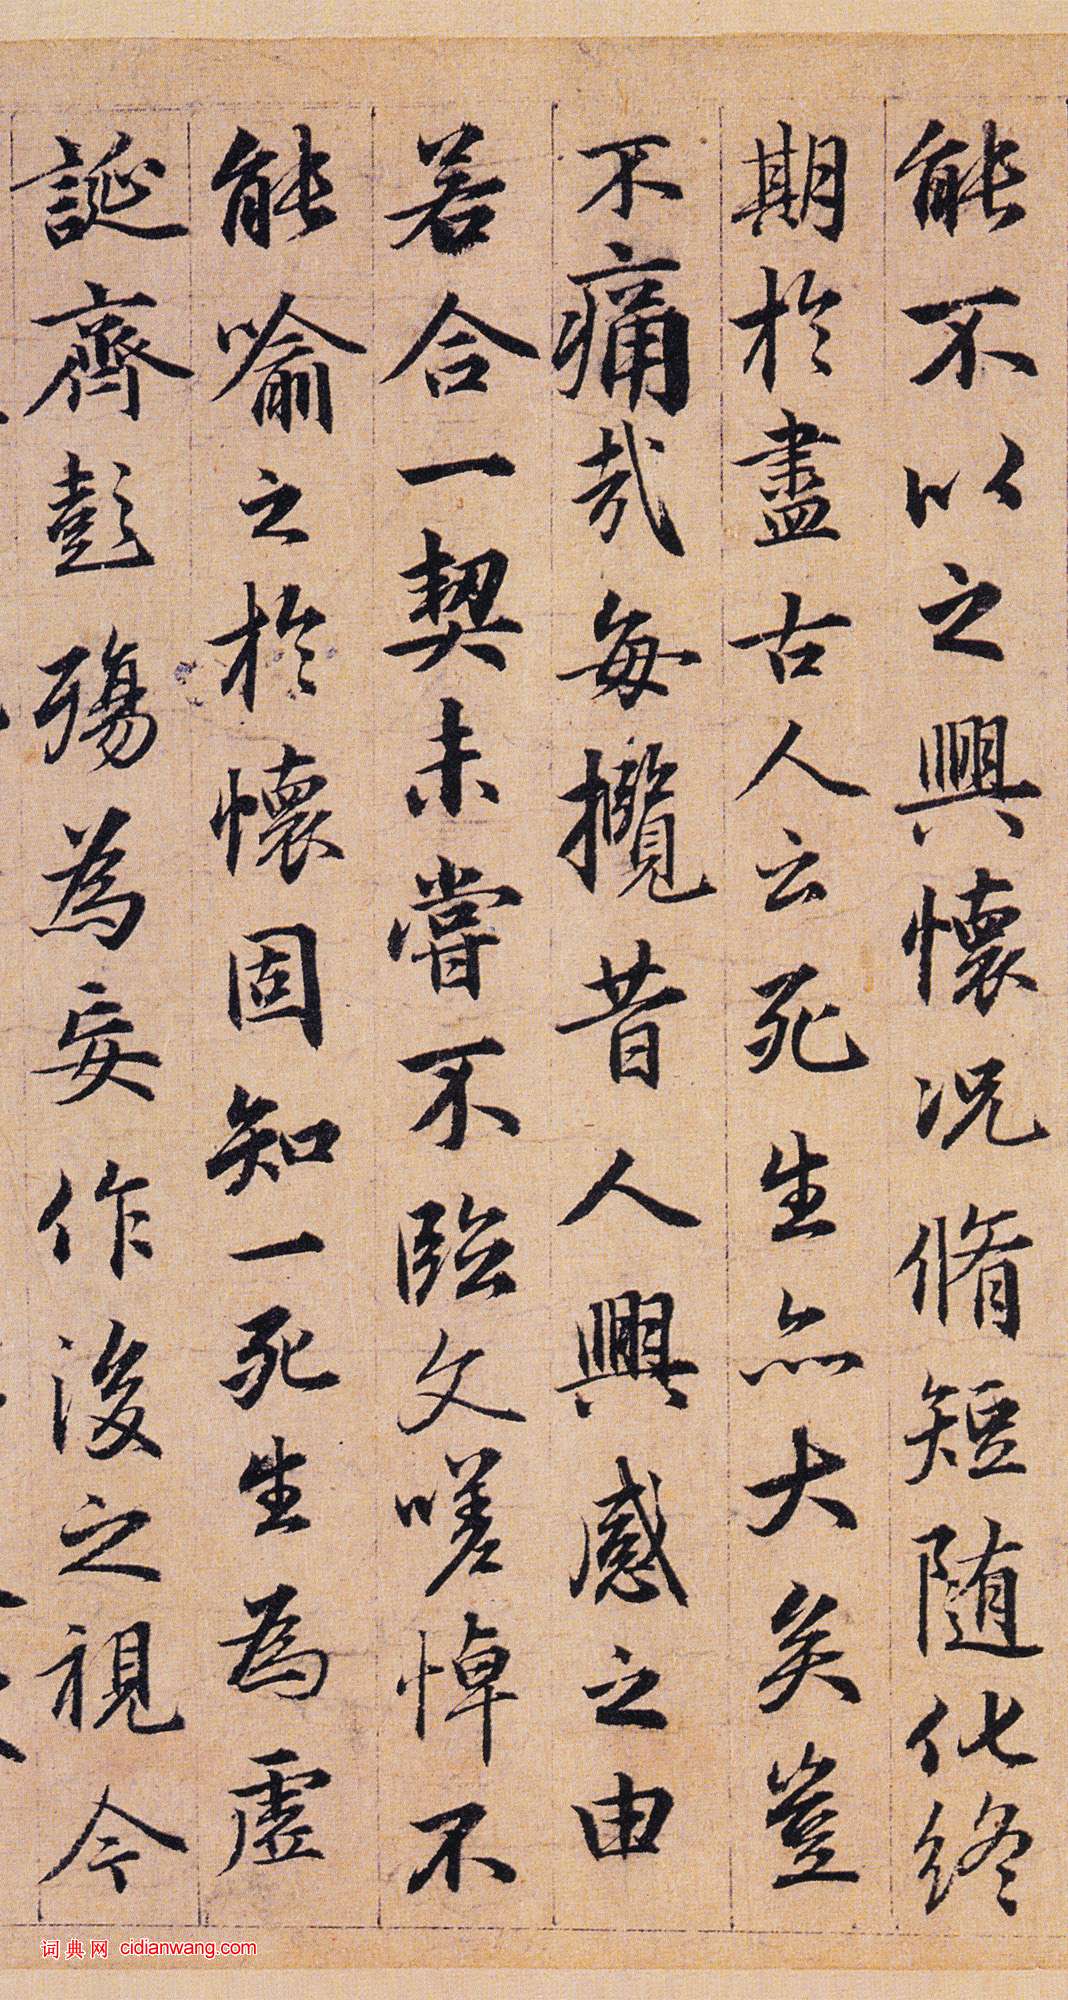 能不以之興懷况脩短随化終
期於盡古人云死生亦大矣豈
不痛哉每攬昔人興感之由
若合一契未嘗不臨文嗟悼不
能喻之於懷固知一死生為虛
誕齊彭殤為妄作後之視今
词典网 cidianwang.com